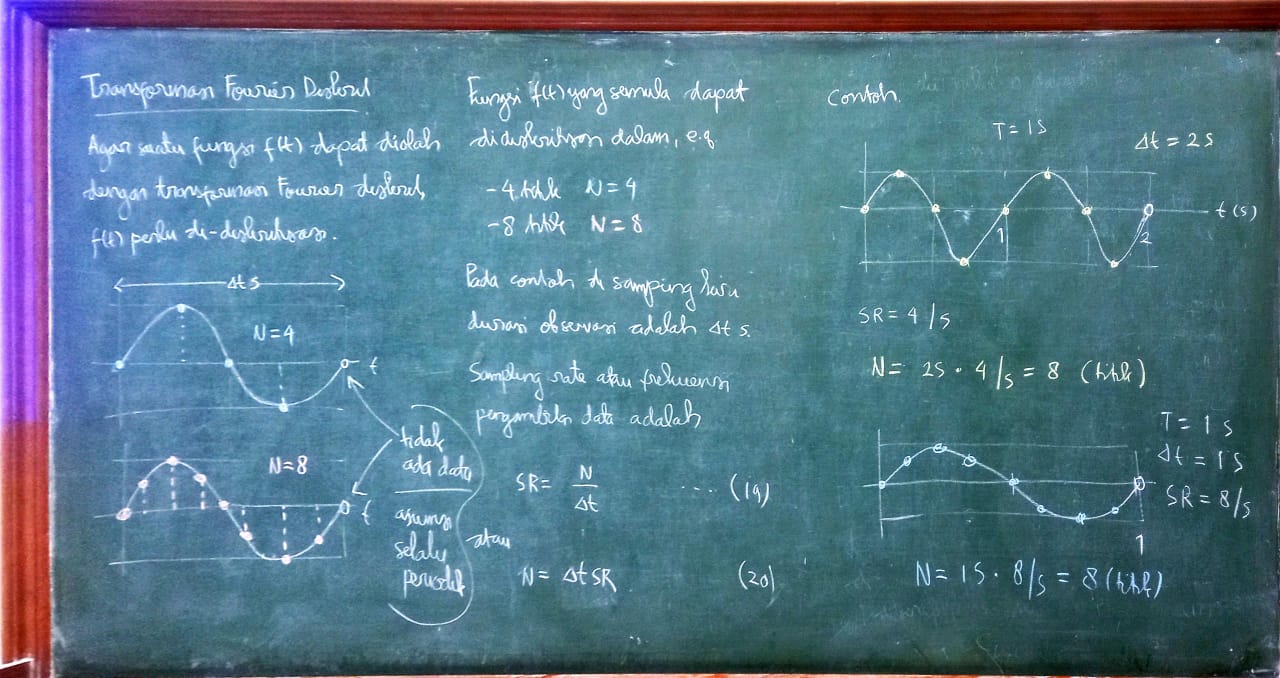 Transformasi Fourier Diskrit
Agar suatu fungsi f(t) dapat diolah
dengan transformasi Fourier diskrit,
f(t) perlu di-diskritisasi.
Δt s
N=4
t
N=8
t
tidak
ada data
asumsi
selalu
periodik
Fungsi f(t) yang semula dapat
didiskritkan dalam, e.g.
-4 titik N=4
-8 titik N=8
Pada contoh di samping kiri
durasi observasi adalah Δt s.
Sampling rate atau frekuensi
pengambilan data adalah
SR= N/Δt .... (19)
atau
N= Δt SR (20)
Contoh.
T= 1s
Δt = 2s
t (s)
1
2
SR= 4/s
N= 2s · 4/s = 8 (titik)
T= 1 s
Δt = 1s
SR= 8/s
1
N= 1s · 8/s = 8 (titik)